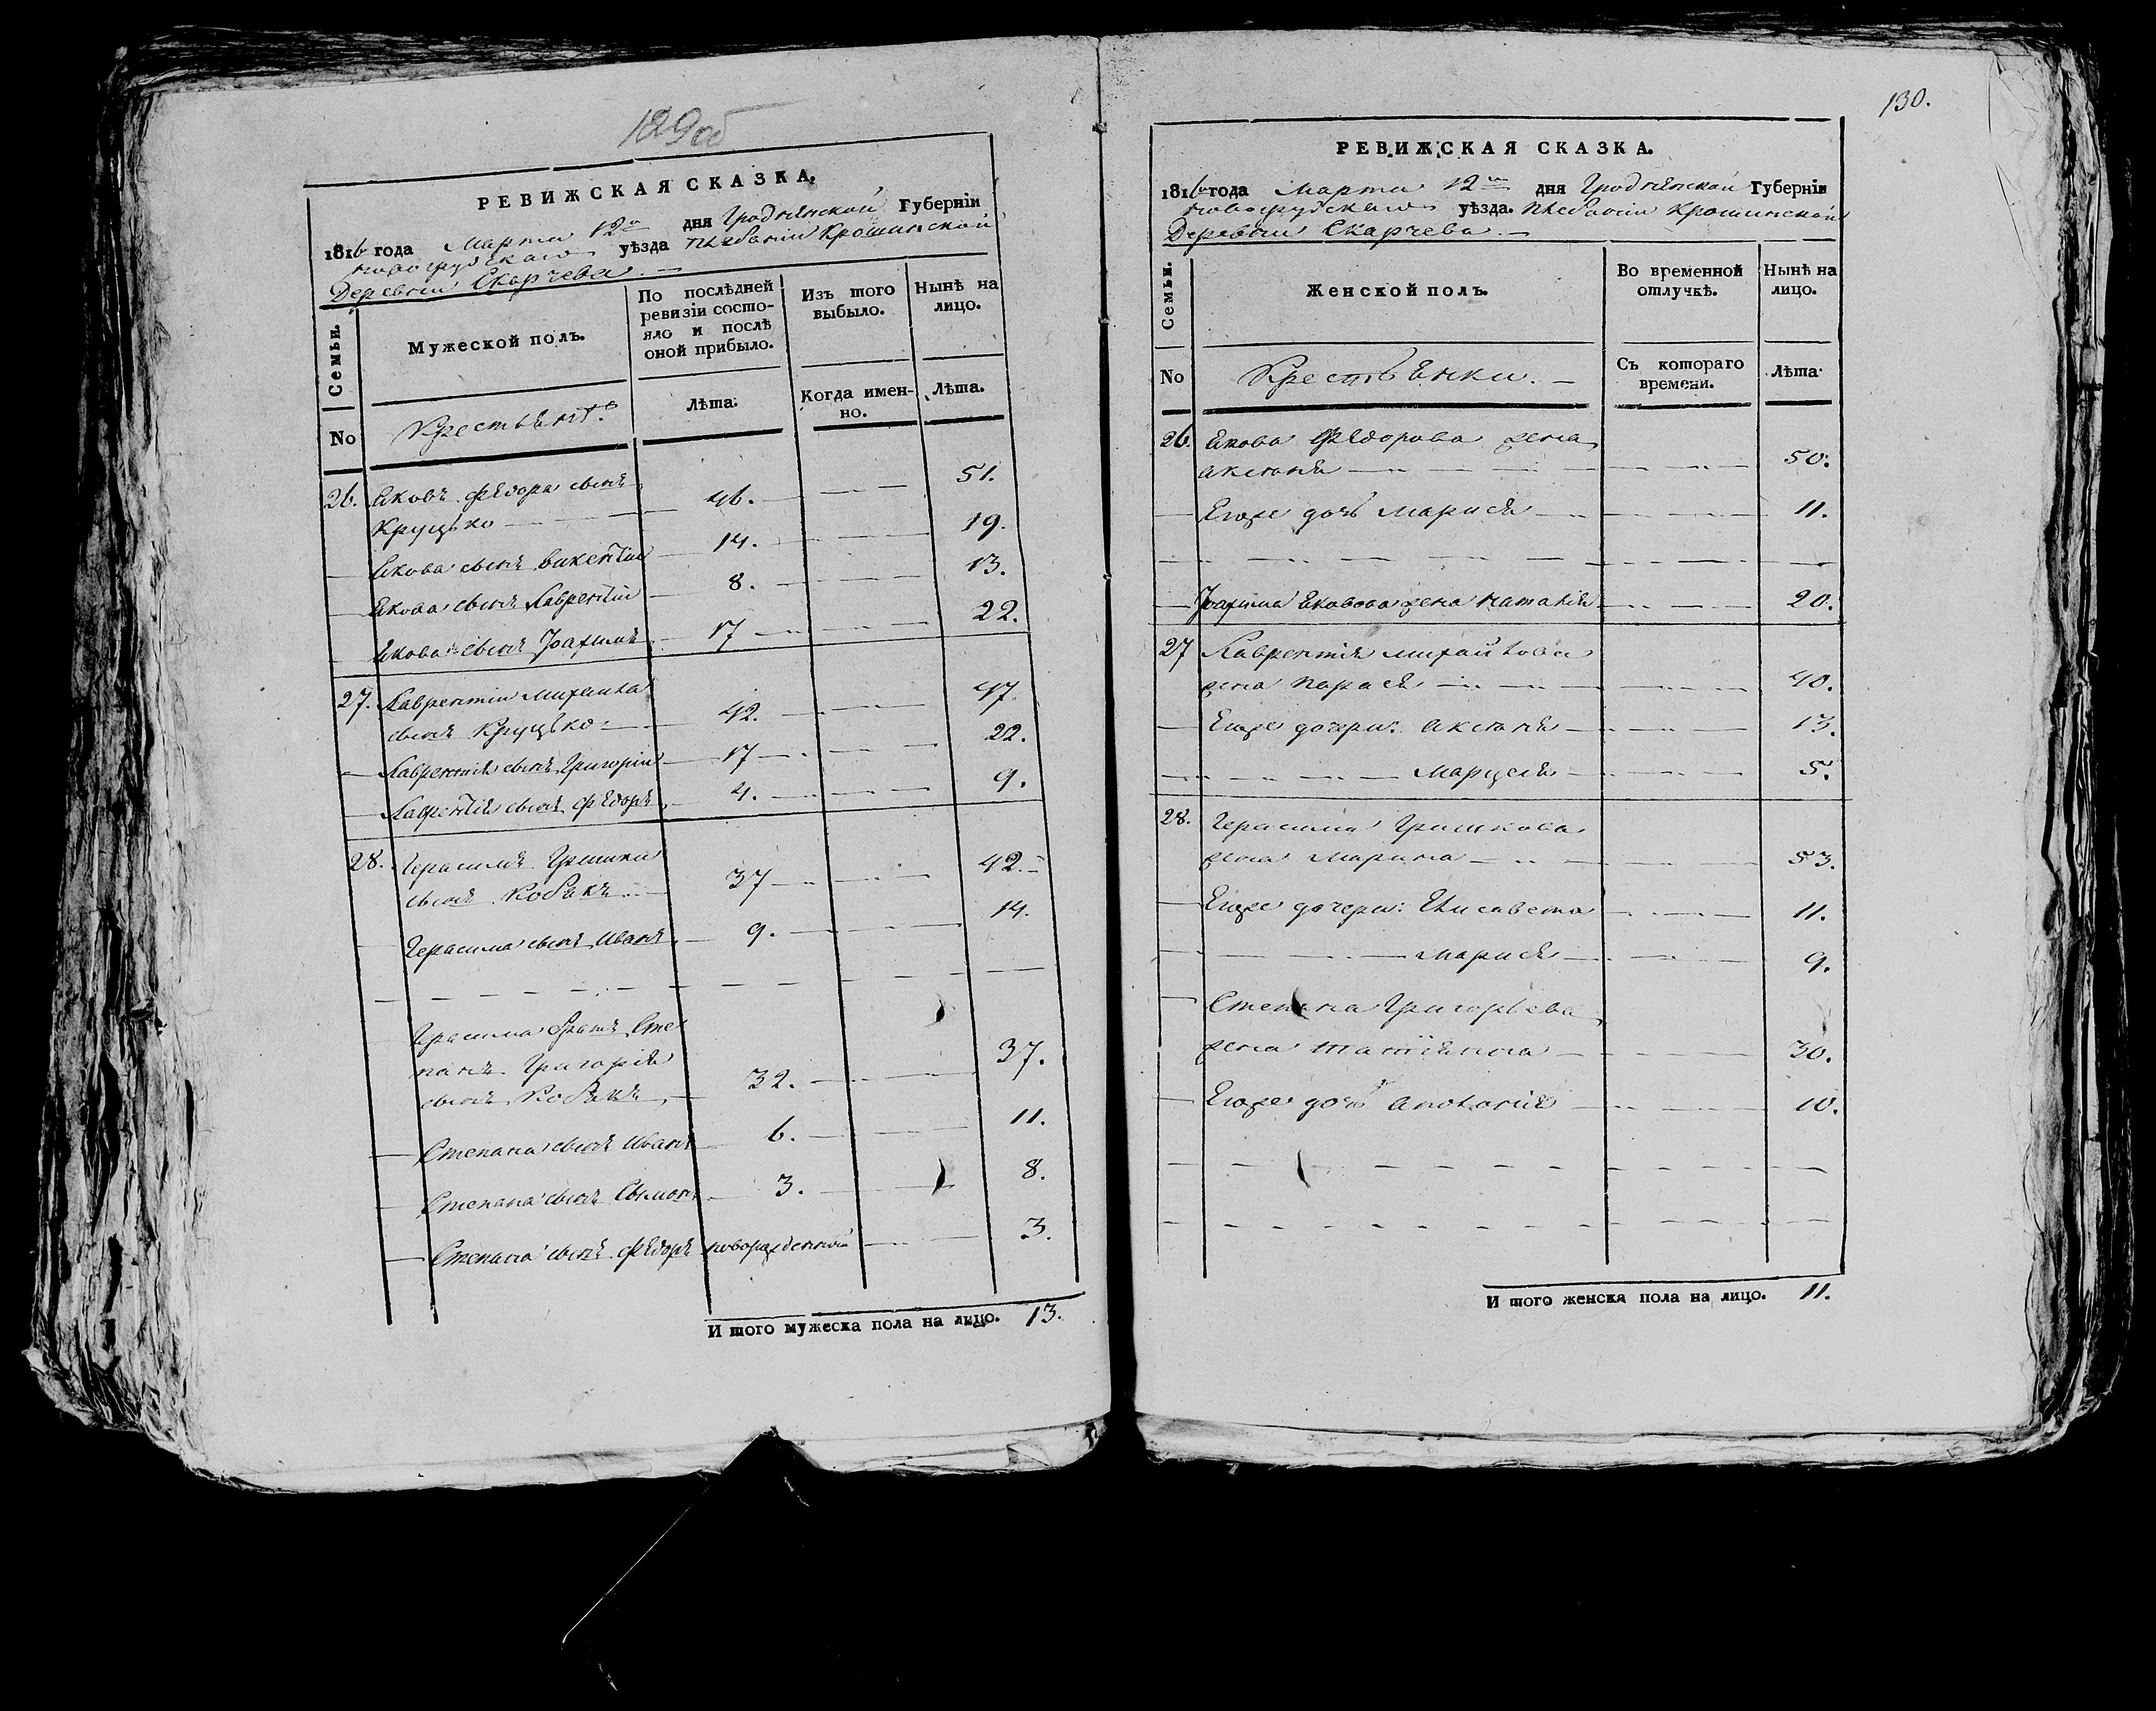 129об
РЕВИЖСКАЯ СКАЗКА.
1816 года Марта 12го дня Гродненской Губерніи
Новогрудскаго уѣзда Плебаніи Крошинской
Деревни Скарчева. —
Семьи.
Мужеской полъ.
По послѣдней ревизіи состояло и послѣ оной прибыло.
Изъ того выбыло.
Нынѣ на лицо.
No
Крестьянѣ.
Лѣта.
Когда именно.
Лѣта.
26. Яковъ Федора сынъ
Круцько — 46. — 51.
Якова сынъ Викентій — 14. — 19.
Якова сынъ Лаврентій — 8. — 13.
Якова сынъ Іоахимъ — 17 — 22.
27. Лаврентій Михайла
сынъ Круцько — 42. — 47.
Лаврентія сынъ Григорій — 17 — 22.
Лаврентія сынъ Федоръ — 4. — 9.
28. Герасимъ Гришки
сынъ Кобакъ — 37 — 42.
Герасима сынъ Иванъ — 9. — 14.
Герасима братъ Сте
панъ Григорія
сынъ Кобакъ — 32. — 37.
Степана сынъ Иванъ — 6. — 11.
Степана сынъ Сымонъ — 3. — 8.
Степана сынъ Федоръ новорожденный — 3.
И того мужеска пола на лицо. 13.
130.
РЕВИЖСКАЯ СКАЗКА.
1816 года Марта 12го дня Гродненской Губерніи
Новогрудскаго уѣзда. Плебаніи Крошинской
Деревни Скарчева. —
Семьи.
Женской полъ.
Во временной отлучкѣ.
Нынѣ на лицо.
No
Крестьянки. —
Съ котораго времени.
Лѣта.
26. Якова Федорова жена
Аксюня — 50.
Егоже дочь Марися — 11.
Іоахима Яковова жена Наталія — 20.
27 Лаврентія Михайлова
жена Парася — 40.
Егоже дочери: Аксюня — 13.
Маруся — 5.
28. Герасима Гришкова
жена Марина — 53.
Егоже дочери: Елисавета — 11.
Марися — 9.
Степана Григорьева
жена Татіянна — 30.
Егоже дочь Аполонія — 10.
И того женска пола на лицо. 11.